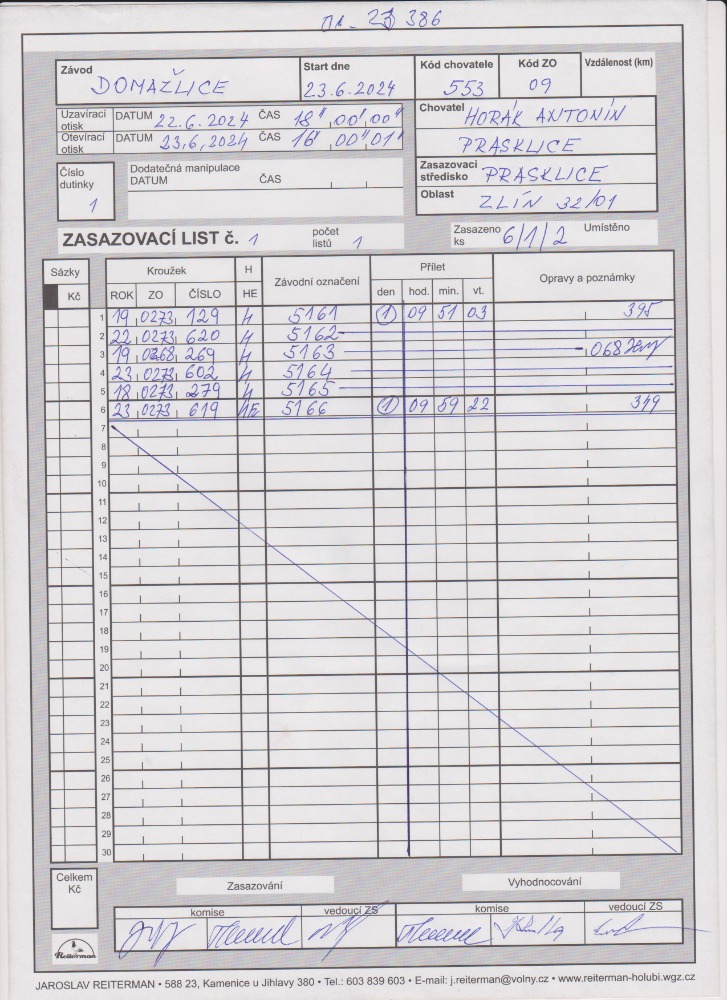 386
Závod Start dne Kód chovatele Kód ZO Vzdálenost (km)
DOMAŽLICE 23.6.2024 553 09
Uzavírací otisk DATUM 22.6.2024 ČAS 18" 00' 00"
Otevírací otisk DATUM 23,6,2024 ČAS 16" 00" 01"
Chovatel HORÁK ANTONÍN
PRASKLICE
Zasazovací středisko PRASKLICE
Oblast ZLÍN 32/01
Číslo dutinky 1
Dodatečná manipulace
DATUM ČAS
ZASAZOVACÍ LIST č. 1 počet listů 1 Zasazeno ks 6/1/2 Umístěno
Sázky Kroužek H Závodní označení Přílet Opravy a poznámky
Kč ROK ZO ČÍSLO HE den hod. min. vt.
1 19 0273 129 H 5161 1 09 51 03 395
2 22 0273 620 H 5162
3 19 0268 269 H 5163 068
4 23 0273 602 H 5164
5 18 0273 279 H 5165
6 23 0273 619 5166 1 09 59 22 349
7
8
9
10
11
12
13
14
15
16
17
18
19
20
21
22
23
24
25
26
27
28
29
30
Celkem Kč
Zasazování Vyhodnocování
komise vedoucí ZS komise vedoucí ZS
Reiterman
JAROSLAV REITERMAN • 588 23, Kamenice u Jihlavy 380 • Tel.: 603 839 603 • E-mail: j.reiterman@volny.cz • www.reiterman-holubi.wgz.cz